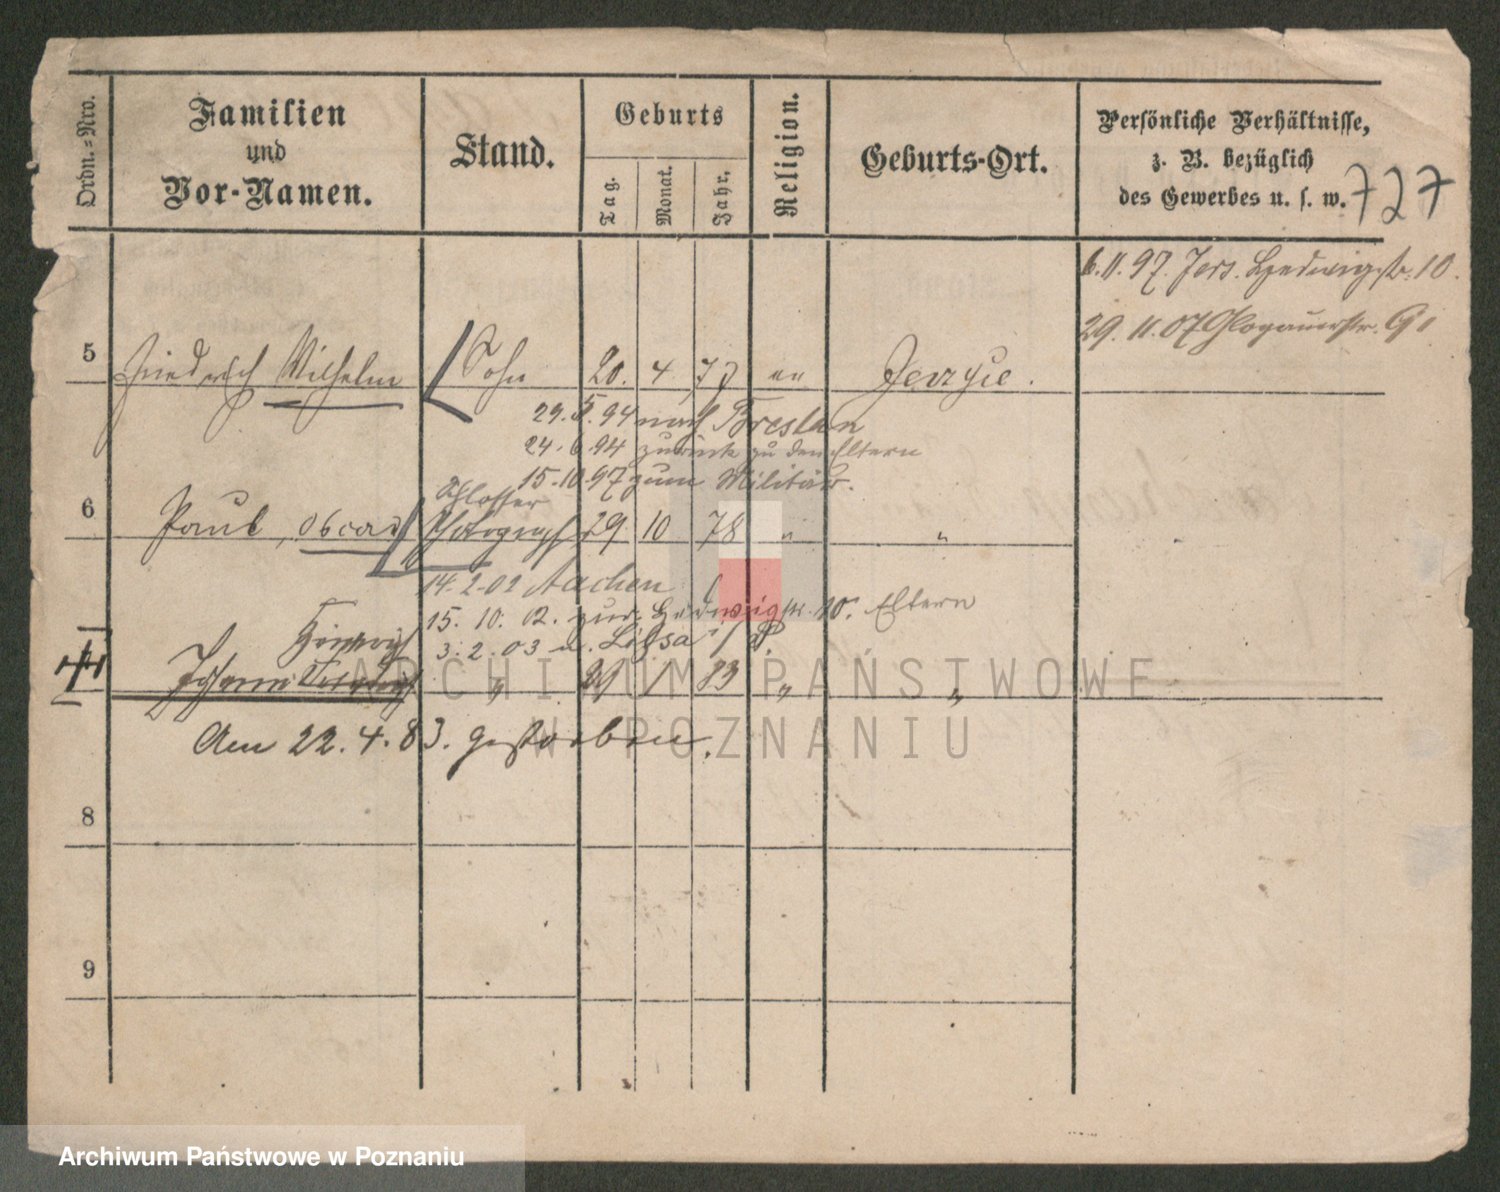 Ordn.=Nro.
Familien
und
Vor-Namen.
Stand.
Geburts
Tag.
Monat.
Jahr.
Religion.
Geburts-Ort.
Persönliche Verhältnisse,
z. B. bezüglich
des Gewerbes u. s. w.
727
6.11.97. Jers. Hedwigstr. 10.
29.11.07 Glogauerstr. 91
5 Friedrich Wilhelm Sohn 20. 4 77 Jerzyce.
29.5.94 nach Breslau
24.6.94 zurück zu den Eltern
15.10.97 zum Militär.
Schlosser
6 Paul, Oscar 29 10 78 "
14.2.02 Aachen
15.10.02. zur. Hedwigstr. 10. Eltern
3.2.03 n. Lissa i/P.
Johann " 29 1 83 " "
Am 22.4.83. gestorben.
8
9
ARCHIWUM PAŃSTWOWE
W POZNANIU
Archiwum Państwowe w Poznaniu